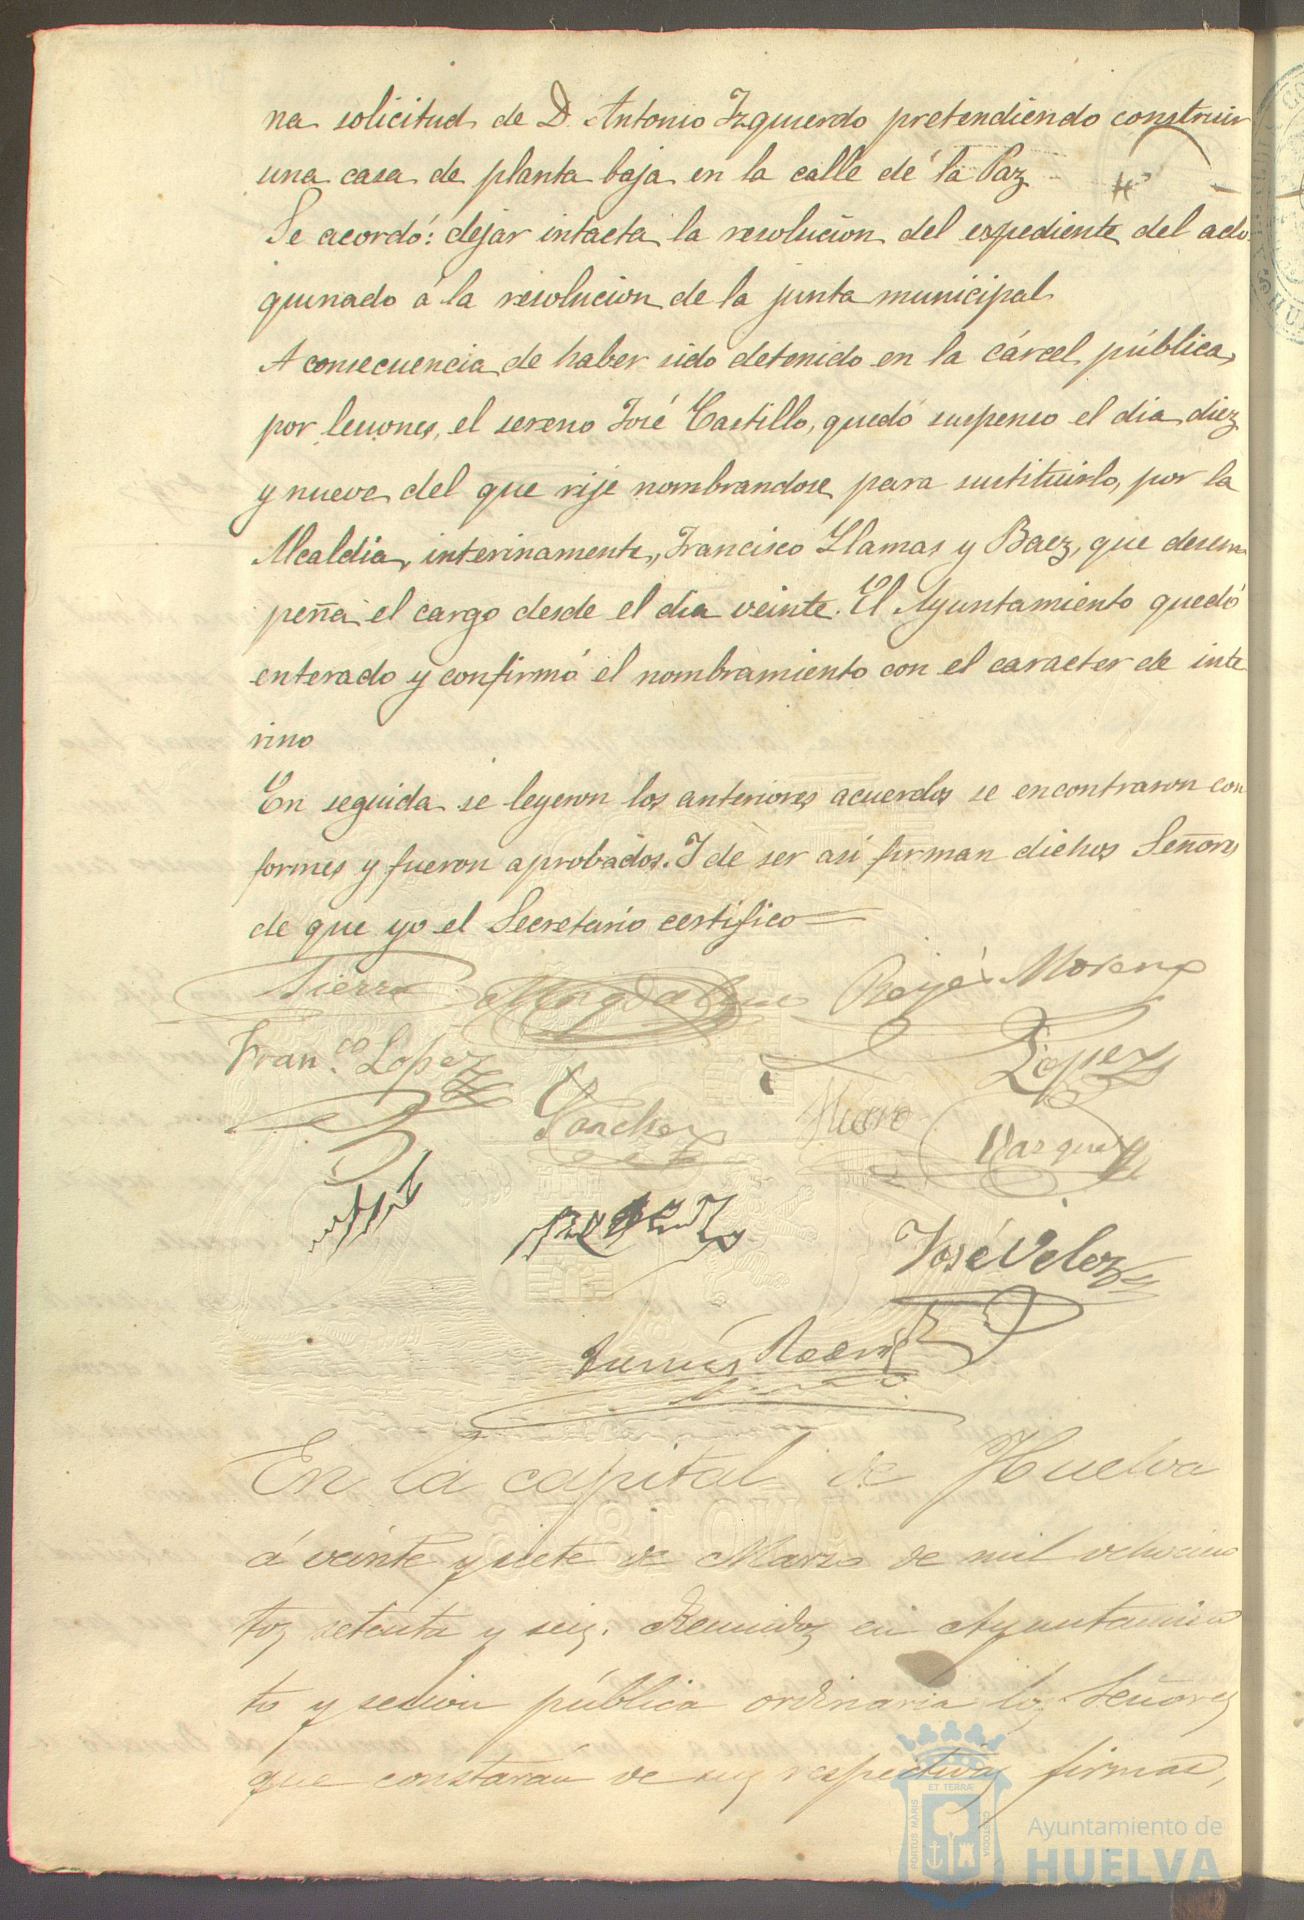 na solicitud de D. Antonio Izquierdo pretendiendo construir
una casa de planta baja en la calle de la Paz
Se acordó: dejar intacta la resolucion del espediente del ado
quinado á la resolucion de la junta municipal
A consecuencia de haber sido detenido en la cárcel pública,
por lesiones, el sereno José Castillo, quedó suspenso el dia diez
y nueve del que rije nombrandose para sustituirlo, por la
Alcaldia, interinamente, Francisco Llamas y Baez, que desem
peña el cargo desde el dia veinte. El Ayuntamiento quedó
enterado y confirmó el nombramiento con el caracter de inte
rino
En seguida se leyeron los anteriores acuerdos se encontraron con
formes y fueron aprobados. Y de ser asi firman dichos Señores
de que yo el Secretario certifico
Sierra Reyes Moreno
Fran.co Lopez Lopez
Sanchez Vazquez
José Velez
En la capital de Huelva
á veinte y siete de Marzo de mil ochocien
tos setenta y seis. Reunidos en Ayuntamien
to y sesion pública ordinaria los Señores
que constarán de sus respectivas firmas,
AÑO 1876
PORTUS MARIS
ET TERRÆ
CUSTODIA
Ayuntamiento de
HUELVA